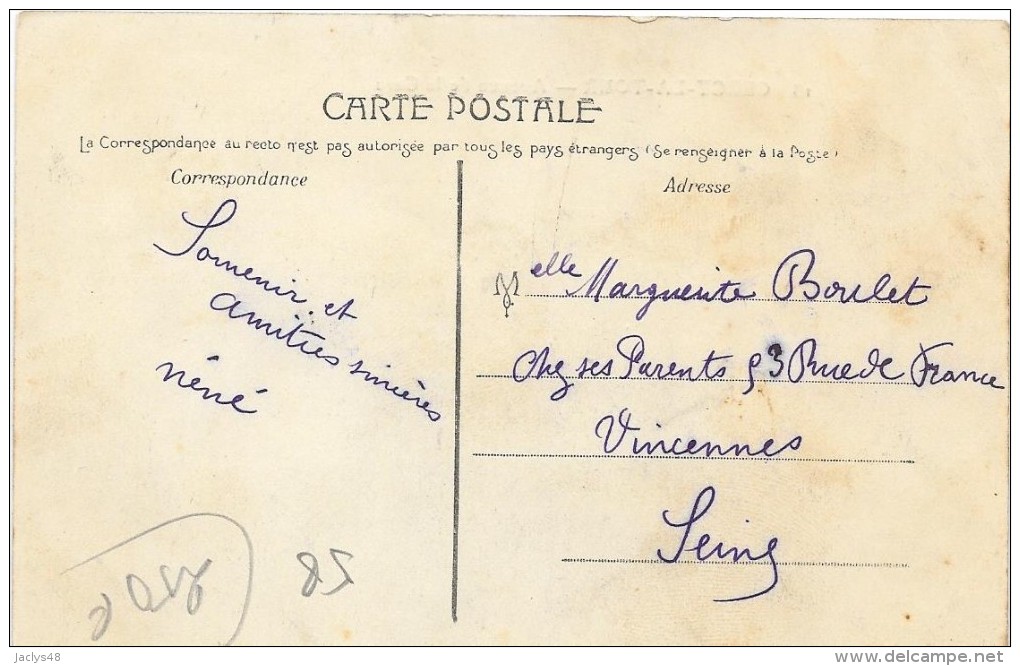 CARTE POSTALE
La Correspondance au recto n'est pas autorisée par tous les pays étrangers (Se renseigner à la Poste)
Correspondance
Adresse
Souvenir et
amitiés sincères
néné
Melle Marguerite Boulet
Chez ses Parents 53 Rue de France
Vincennes
Seine
58
jaclys48
www.delcampe.net